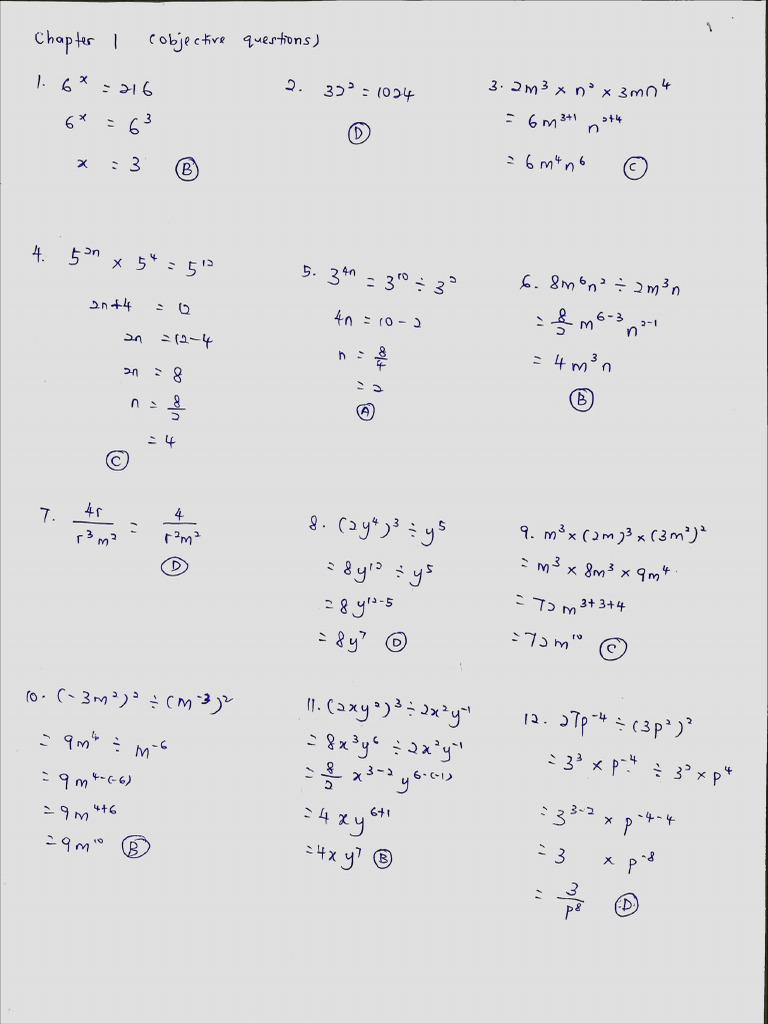 1
Chapter 1 (objective questions)
1. 6^x = 216
6^x = 6^3
x = 3 (B)
2. 32^2 = 1024
(D)
3. 2m^3 × n^2 × 3mn^4
= 6m^{3+1} n^{2+4}
= 6m^4n^6 (C)
4. 5^{2n} × 5^4 = 5^{12}
2n+4 = 12
2n = 12-4
2n = 8
n = 8/2
= 4
(C)
5. 3^{4n} = 3^{10} ÷ 3^2
4n = 10-2
n = 8/4
= 2
(A)
6. 8m^6n^2 ÷ 2m^3n
= 8/2 m^{6-3} n^{2-1}
= 4m^3n
(B)
7. 4r/r^3m^2 = 4/r^2m^2
(D)
8. (2y^4)^3 ÷ y^5
= 8y^{12} ÷ y^5
= 8y^{12-5}
= 8y^7 (D)
9. m^3 × (2m)^3 × (3m^2)^2
= m^3 × 8m^3 × 9m^4
= 72m^{3+3+4}
= 72m^{10} (C)
10. (-3m^2)^2 ÷ (m^{-3})^2
= 9m^4 ÷ m^{-6}
= 9m^{4-(-6)}
= 9m^{4+6}
= 9m^{10} (B)
11. (2xy^2)^3 ÷ 2x^2y^{-1}
= 8x^3y^6 ÷ 2x^2y^{-1}
= 8/2 x^{3-2} y^{6-(-1)}
= 4xy^{6+1}
= 4xy^7 (B)
12. 27p^{-4} ÷ (3p^2)^2
= 3^3 × p^{-4} ÷ 3^2 × p^4
= 3^{3-2} × p^{-4-4}
= 3 × p^{-8}
= 3/p^8 (D)